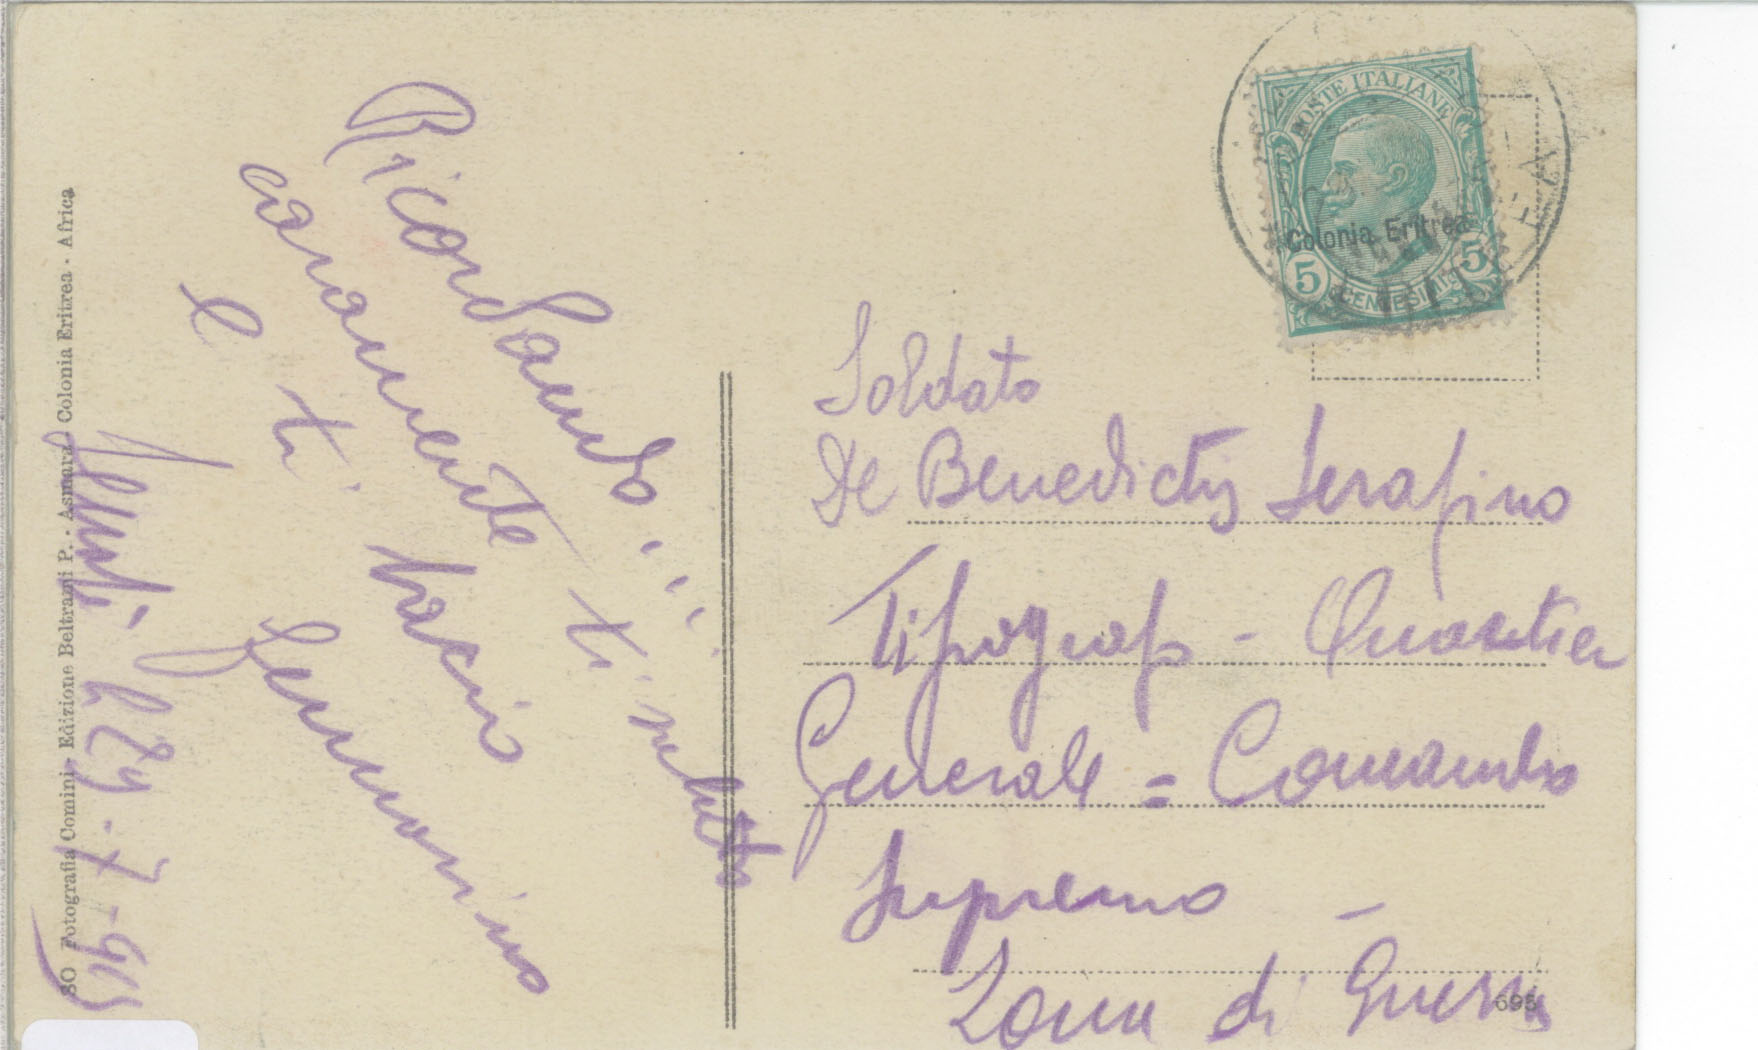 Ricordando
caramente ti saluto
e ti bacio
Gennarino
li 29-7-915
80 Fotografia Comini - Edizione Beltrami P. - Asmara - Colonia Eritrea - Africa
POSTE ITALIANE
Colonia Eritrea
5 CENTESIMI 5
Soldato
De Benedictis Serafino
Tipograf - Quartier
Generale = Comando
Supremo -
Zona di Guerra
695